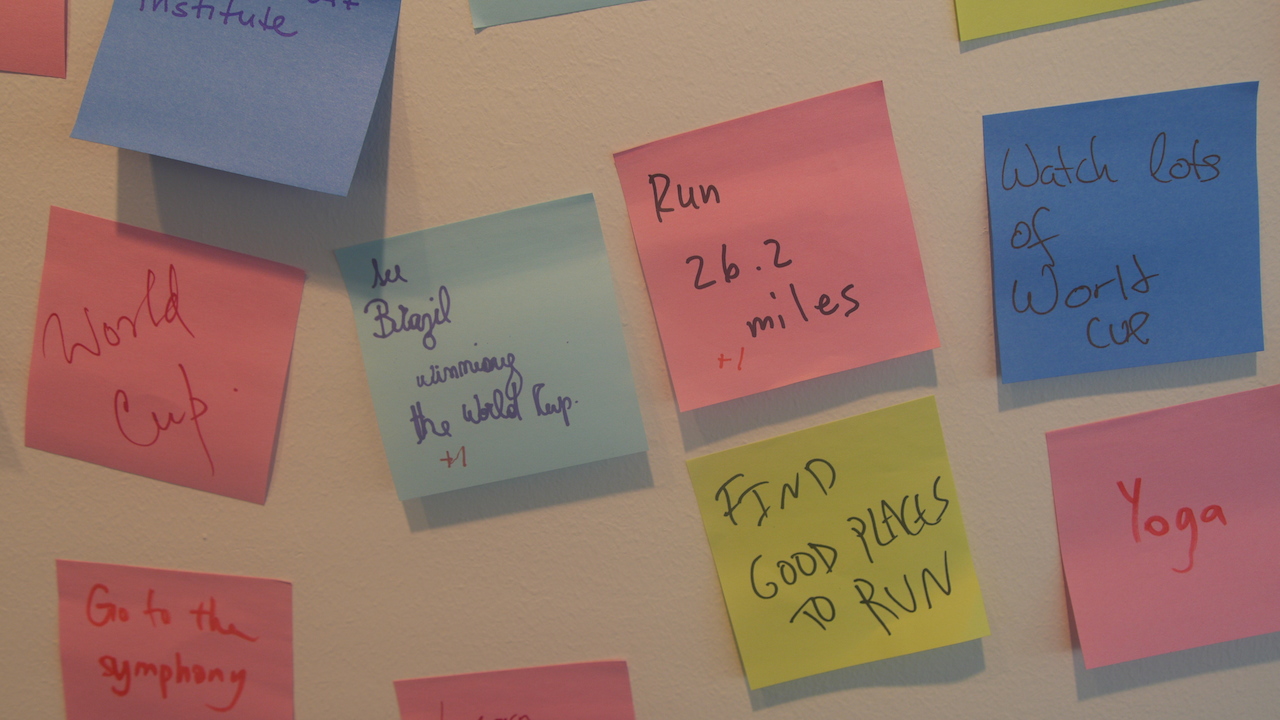 institute
World
Cup.
see
Brazil
winning
the world Cup.
+1
Run
26.2
miles
+1
Watch lots
of
World
CUP
FIND
GOOD PLACES
TO RUN
Yoga
Go to the
symphony